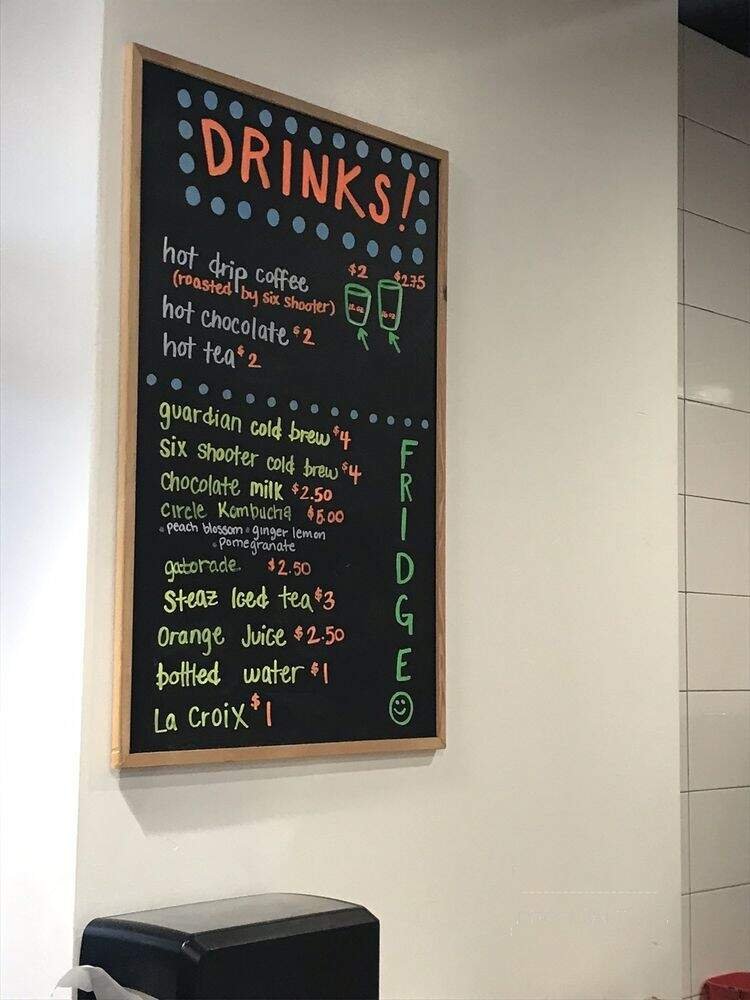 DRINKS!
hot drip coffee $2 $2.75
(roasted by six shooter)
hot chocolate $2
hot tea $2
guardian cold brew $4
Six shooter cold brew $4
Chocolate milk $2.50
Circle Kombucha $5.00
• peach blossom • ginger lemon
• Pomegranate
gatorade $2.50
Steaz Iced tea $3
Orange Juice $2.50
bottled water $1
La Croix $1
FRIDGE